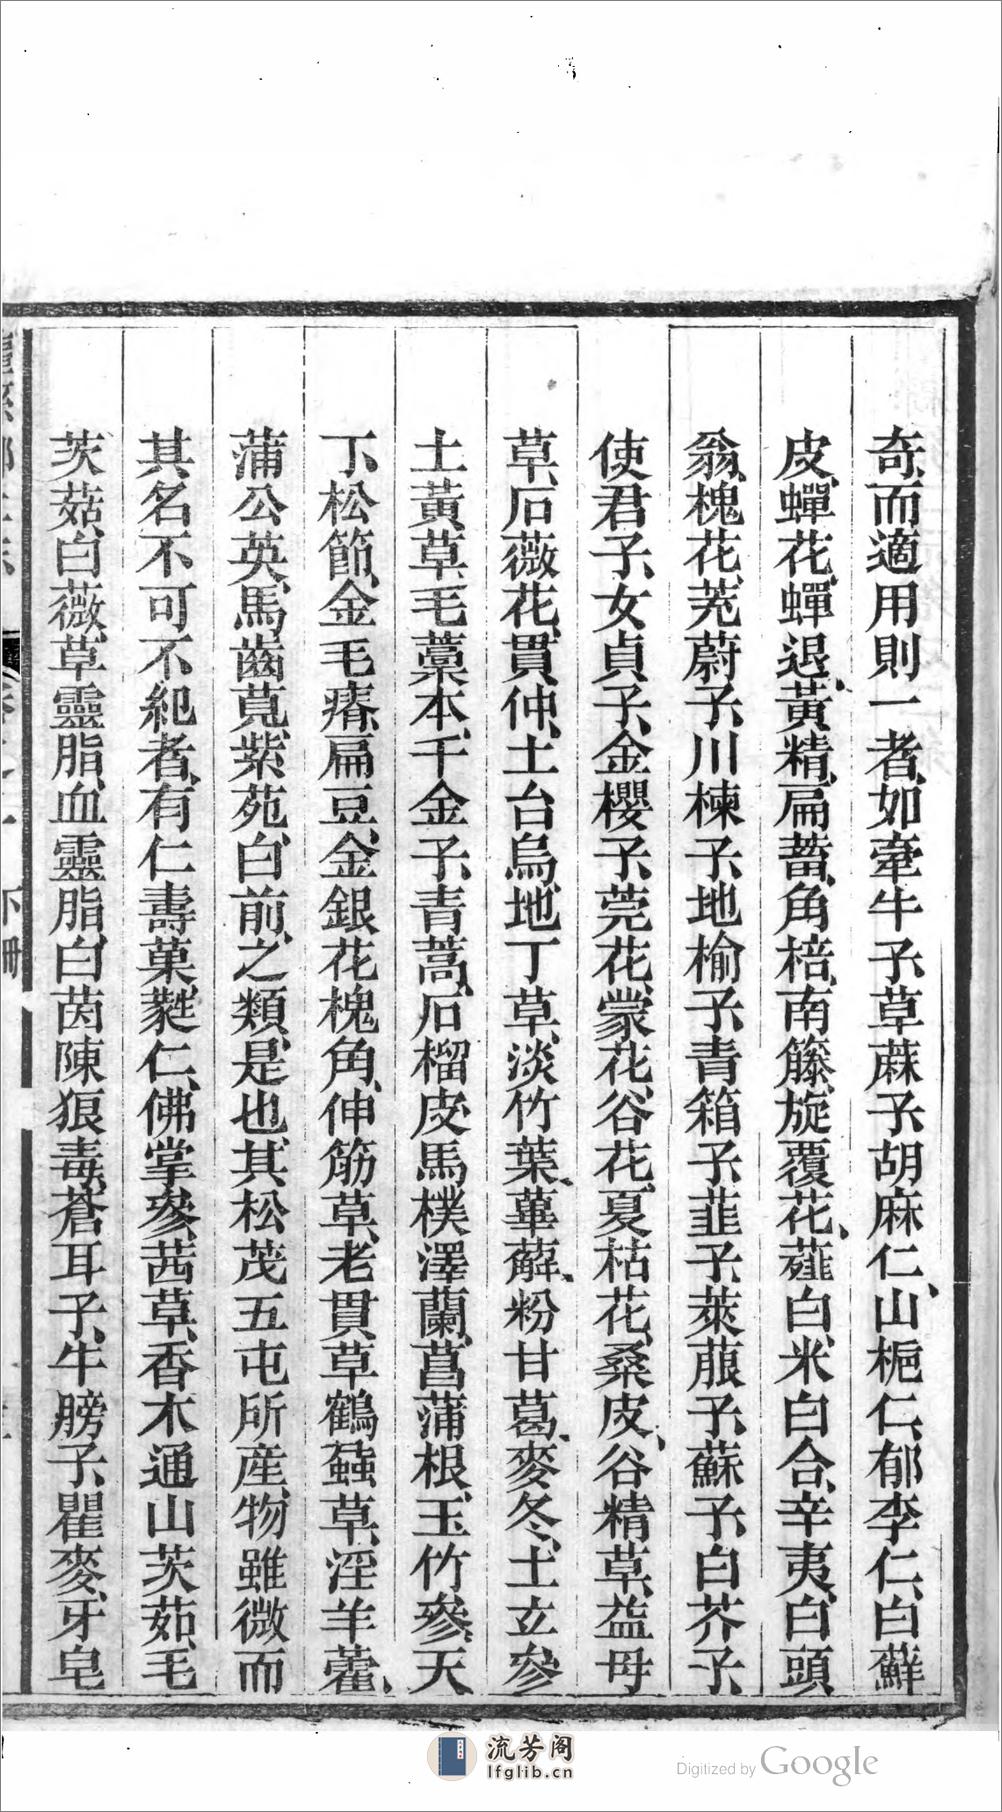 奇、而適用則一者、如牽牛子、草蔴子、胡麻仁、山梔仁、郁李仁、白蘚
皮、蟬花、蟬退、黃精、扁蓄、角棓、南籐、旋覆花、薤白、米白合、辛夷、白頭
翁、槐花、茺蔚子、川楝子、地榆子、青箱子、韭子、萊菔子、蘇子、白芥子、
使君子、女貞子、金櫻子、莞花、蒙花、谷花、夏枯花、桑皮、谷精草、益母
草、石薇花、貫仲、土台烏、地丁草、淡竹葉、萆薢、粉甘葛、麥冬、土立參
土黃草、毛藁本、千金子、青蒿、石榴皮、馬樸、澤蘭、菖蒲根、玉竹參、天
下松節、金毛瘠、扁豆、金銀花、槐角、伸筋草、老貫草、鶴蝨草、淫羊藿、
蒲公英、馬齒莧、紫苑、白前、之類、是也、其松茂五屯所產、物雖微而
其名不可不紀者、有仁壽菓、蕤仁、佛掌參、茜草、香木通、山茨茹、毛
茨菇、白薇草、靈脂、血靈脂、白茵陳、狼毒、蒼耳子、牛膀子、瞿麥、牙皂
下冊
流芳阁
lfglib.cn
Digitized by Google